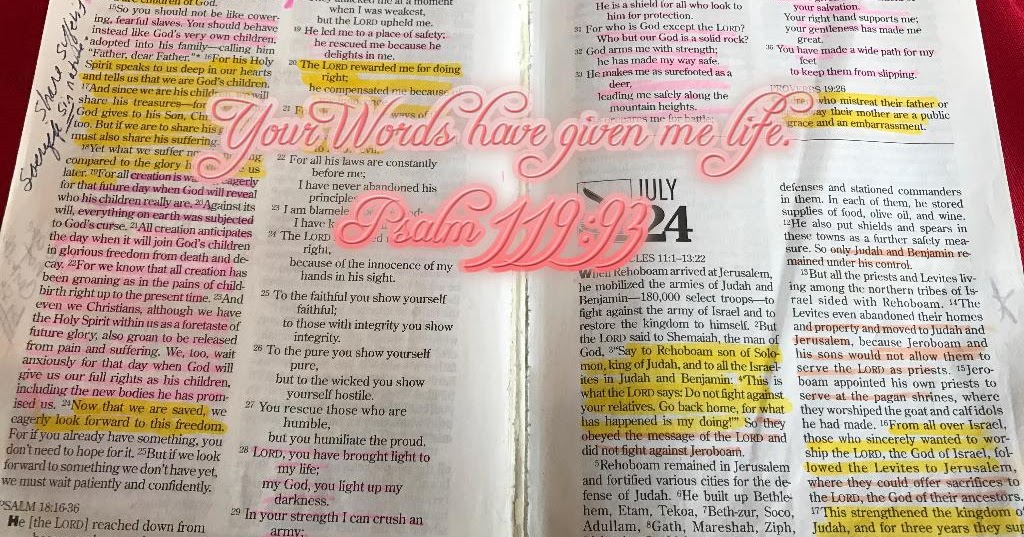 15So you should not be like cower-
ing, fearful slaves. You should behave
instead like God's very own children,
adopted into his family—calling him
"Father, dear Father."* 16For his Holy
Spirit speaks to us deep in our hearts
and tells us that we are God's children.
17And since we are his children, will
share his treasures—for
God gives to his Son,
too. But if we are to share his
must also share his suffering.
18Yet what we suffer now
compared to the glory he us
later. 19For all creation is eagerly
for that future day when God will reveal
who his children really are. 20Against its
will, everything on earth was subjected
to God's curse. 21All creation anticipates
the day when it will join God's children
in glorious freedom from death and de-
cay. 22For we know that all creation has
been groaning as in the pains of child-
birth right up to the present time. 23And
even we Christians, although we have
the Holy Spirit within us as a foretaste of
future glory, also groan to be released
from pain and suffering. We, too, wait
anxiously for that day when God will
give us our full rights as his children,
including the new bodies he has prom-
ised us. 24Now that we are saved, we
eagerly look forward to this freedom.
For if you already have something, you
don't need to hope for it. 25But if we look
forward to something we don't have yet,
we must wait patiently and confidently.
PSALM 18:16-36
He [the LORD] reached down from
me at a moment
when I was weakest,
but the LORD upheld me.
19 He led me to a place of safety;
he rescued me because he
delights in me.
20 The LORD rewarded me for doing
right;
he compensated me because
21 ways of
22 For all his laws are constantly
before me;
I have never abandoned his
principles
23 I am blameless
I have
24 The LORD
right,
because of the innocence of my
hands in his sight.
25 To the faithful you show yourself
faithful;
to those with integrity you show
integrity.
26 To the pure you show yourself
pure,
but to the wicked you show
yourself hostile.
27 You rescue those who are
humble,
but you humiliate the proud.
28 LORD, you have brought light to
my life;
my God, you light up my
darkness.
29 In your strength I can crush an
army;
He is a shield for all who look to
him for protection.
31 For who is God except the LORD?
Who but our God is a solid rock?
32 God arms me with strength;
he has made my way safe.
33 He makes me as surefooted as a
deer,
leading me safely along the
mountain heights.
prepares me for battle;
your salvation.
Your right hand supports me;
your gentleness has made me
great.
36 You have made a wide path for my
feet
to keep them from slipping.
PROVERBS 19:26
who mistreat their father or
away their mother are a public
grace and an embarrassment.
Your Words have given me life.
Psalm 119:93
JULY
24
11:1–13:22
When Rehoboam arrived at Jerusalem,
he mobilized the armies of Judah and
Benjamin—180,000 select troops—to
fight against the army of Israel and to
restore the kingdom to himself. 2But
the LORD said to Shemaiah, the man of
God, 3"Say to Rehoboam son of Solo-
mon, king of Judah, and to all the Israel-
ites in Judah and Benjamin: 4'This is
what the LORD says: Do not fight against
your relatives. Go back home, for what
has happened is my doing!'" So they
obeyed the message of the LORD and
did not fight against Jeroboam.
5Rehoboam remained in Jerusalem
and fortified various cities for the de-
fense of Judah. 6He built up Bethle-
hem, Etam, Tekoa, 7Beth-zur, Soco,
Adullam, 8Gath, Mareshah, Ziph,
defenses and stationed commanders
in them. In each of them, he stored
supplies of food, olive oil, and wine.
12He also put shields and spears in
these towns as a further safety mea-
sure. So only Judah and Benjamin re-
mained under his control.
13But all the priests and Levites liv-
ing among the northern tribes of Is-
rael sided with Rehoboam. 14The
Levites even abandoned their homes
and property and moved to Judah and
Jerusalem, because Jeroboam and
his sons would not allow them to
serve the LORD as priests. 15Jero-
boam appointed his own priests to
serve at the pagan shrines, where
they worshiped the goat and calf idols
he had made. 16From all over Israel,
those who sincerely wanted to wor-
ship the LORD, the God of Israel, fol-
lowed the Levites to Jerusalem,
where they could offer sacrifices to
the LORD, the God of their ancestors.
17This strengthened the kingdom of
Judah, and for three years they sup